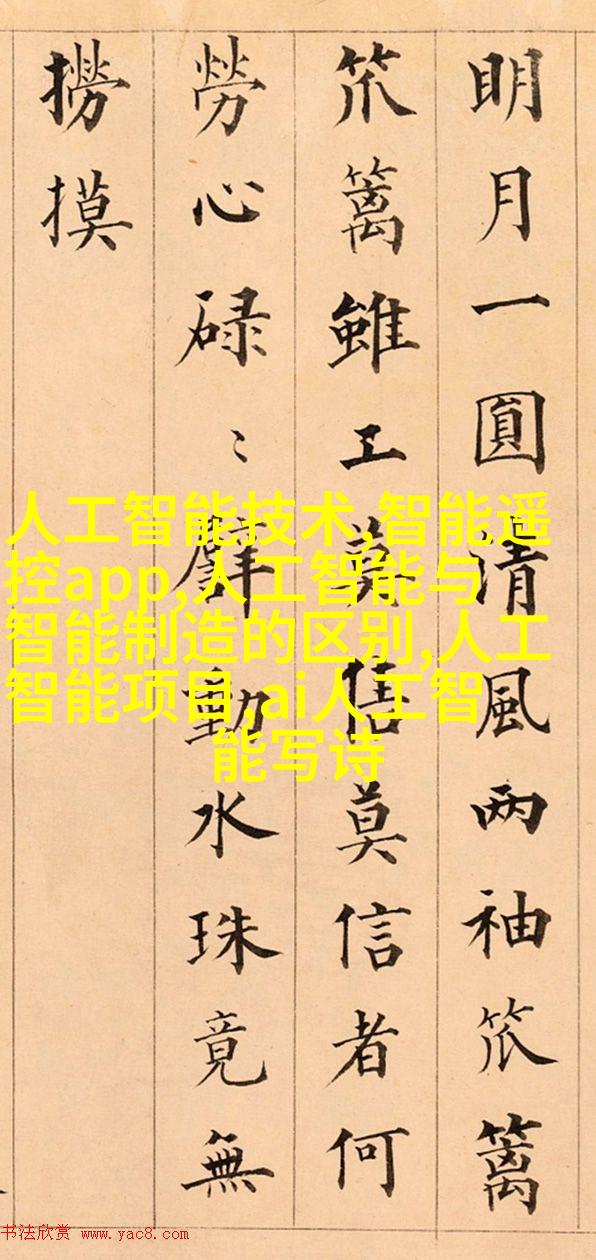 明月一圓清風两袖笊篱
笊篱雖工莫信莫信者何
勞心碌〻群動水珠竟無
撈摸
人工智能技术,智能遥
控app,人工智能与
智能制造的区别,人工
智能项目,ai人工智
能写诗
书法欣赏 www.yac8.com